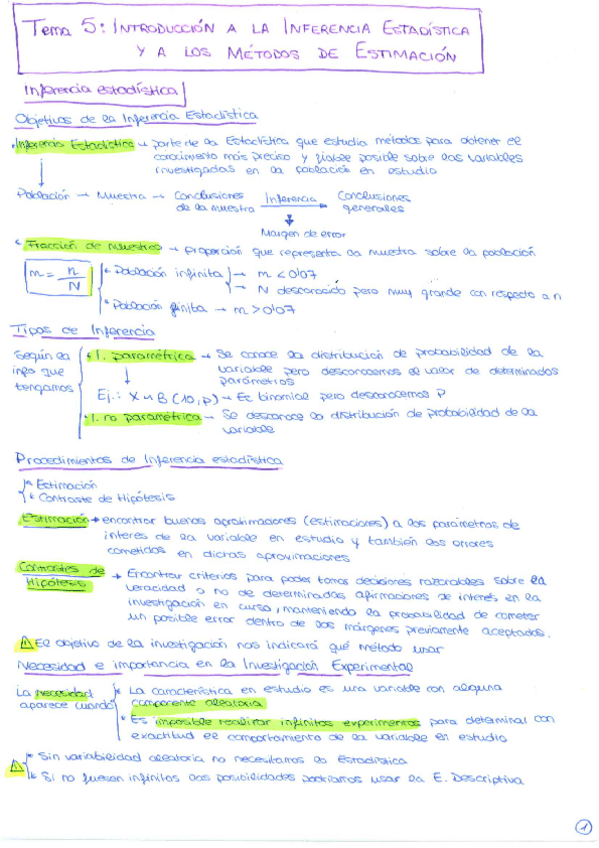 Tema 5: INTRODUCCIÓN A LA INFERENCIA ESTADÍSTICA
Y A LOS MÉTODOS DE ESTIMACIÓN
Inferencia estadística
Objetivos de la Inferencia Estadística
Inferencia Estadística → parte de la Estadística que estudia métodos para obtener el
conocimiento más preciso y fiable posible sobre las variables
investigadas en la población en estudio
Población → Muestra → Conclusiones de la muestra → Inferencia → Conclusiones generales
Margen de error
Fracción de muestreo → proporción que representa la muestra sobre la población
m = n/N
Población infinita → m < 0'07
→ N desconocido pero muy grande con respecto a n
Población finita → m > 0'07
Tipos de Inferencia
Según la info que tengamos
I. paramétrica → Se conoce la distribución de probabilidad de la
variable pero desconocemos el valor de determinados
parámetros
Ej.: X ~ B(10, p) → Es binomial pero desconocemos P
I. no paramétrica → Se desconoce la distribución de probabilidad de la
variable
Procedimientos de Inferencia estadística
Estimación
Contraste de Hipótesis
Estimación → encontrar buenas aproximaciones (estimaciones) a los parámetros de
interés de la variable en estudio y también los errores
cometidos en dichas aproximaciones
Contrastes de Hipótesis → Encontrar criterios para poder tomar decisiones razonables sobre la
veracidad o no de determinadas afirmaciones de interés en la
investigación en curso, manteniendo la probabilidad de cometer
un posible error dentro de los márgenes previamente aceptados.
⚠ El objetivo de la investigación nos indicará qué método usar
Necesidad e importancia en la Investigación Experimental
La necesidad aparece cuando
La característica en estudio es una variable con alguna
componente aleatoria
Es imposible realizar infinitos experimentos para determinar con
exactitud el comportamiento de la variable en estudio
⚠ Sin variabilidad aleatoria no necesitamos la Estadística
Si no fuesen infinitas las posibilidades podríamos usar la E. Descriptiva
1